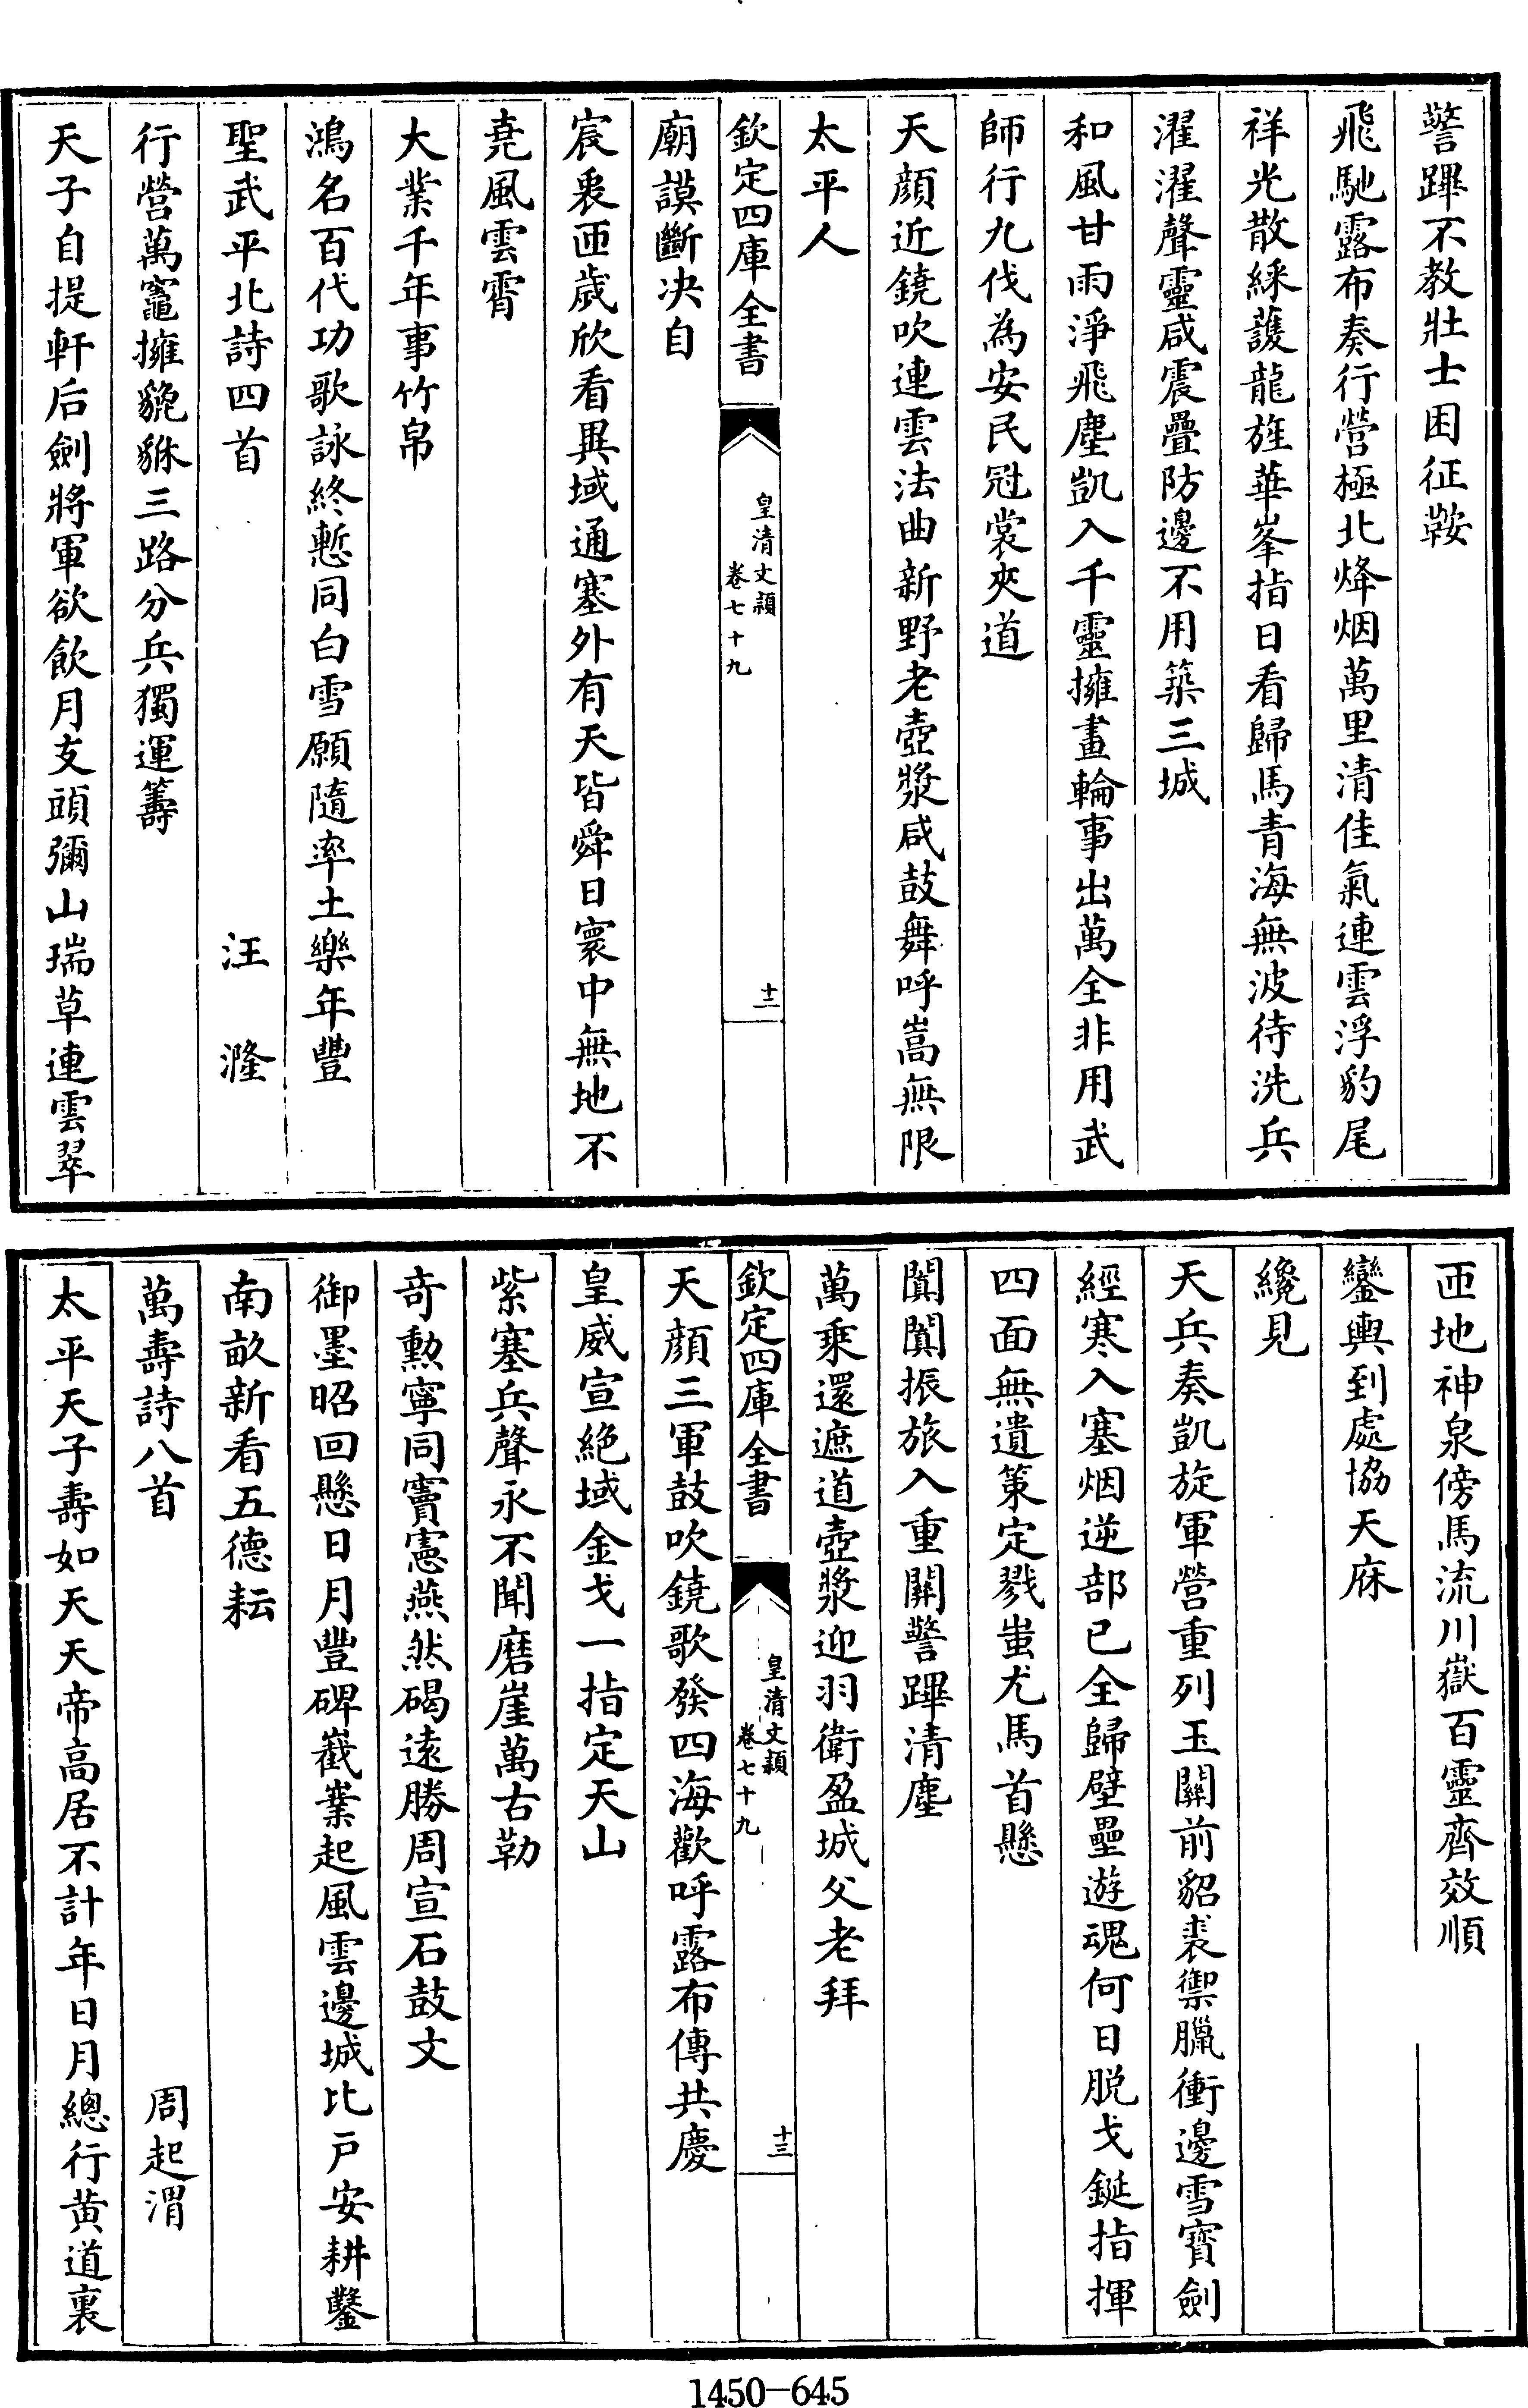 警蹕不教壯士困征鞍
飛馳露布奏行營極北烽烟萬里清佳氣連雲浮豹尾
祥光散綵䕶龍旌華峯指日看歸馬青海無波待洗兵
濯濯聲靈咸震疊防邊不用築三城
和風甘雨淨飛塵凱入千靈擁畫輪事出萬全非用武
師行九伐為安民冠裳夾道
天顔近鐃吹連雲法曲新野老壺漿咸鼓舞呼嵩無限
太平人
欽定四庫全書
皇清文穎
卷七十九
十二
廟謨斷决自
宸衷匝歲欣看異域通塞外有天皆舜日寰中無地不
堯風雲霄
大業千年事竹帛
鴻名百代功歌詠終慙同白雪願隨率土樂年豐
聖武平北詩四首
汪漋
行營萬竈擁貔貅三路分兵獨運籌
天子自提軒后劍將軍欲飲月支頭彌山瑞草連雲翠
匝地神泉傍馬流川嶽百靈齊效順
鑾輿到處協天庥
纔見
天兵奏凱旋軍營重列玉關前貂裘禦臘衝邊雪寳劍
經寒入塞烟逆部已全歸壁壘遊魂何日脱戈鋋指揮
四面無遺策定戮蚩尤馬首懸
闐闐振旅入重關警蹕清塵
萬乘還遮道壺漿迎羽衛盈城父老拜
欽定四庫全書
皇清文穎
卷七十九
十三
天顔三軍鼓吹鐃歌發四海歡呼露布傳共慶
皇威宣絶域金戈一指定天山
紫塞兵聲永不聞磨崖萬古勒
奇勲寧同竇憲燕然碣遠勝周宣石鼓文
御墨昭回懸日月豐碑嶻嶪起風雲邊城比戸安耕鑿
南畝新看五德耘
萬壽詩八首
周起渭
太平天子壽如天天帝高居不計年日月總行黄道裏
1450-645